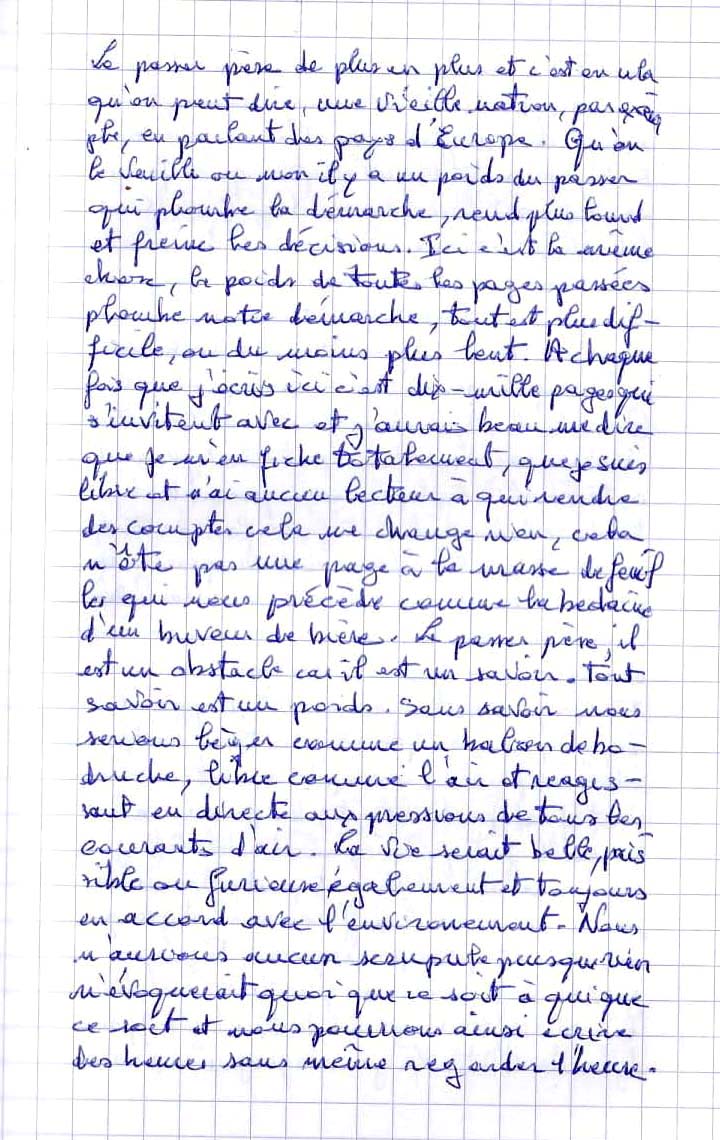 Le passer pèse de plus en plus et c'est en cela
qu'on peut dire, une vieille nation, par exem
ple, en parlant des pays d'Europe. Qu'on
le veuille ou non il y a un poids du passer
qui plombe la démarche, rend plus lourd
et freine les décisions. Ici c'est la même
chose, le poids de toutes les pages passées
plombe notre démarche, tout est plus dif-
ficile, ou du moins plus lent. A chaque
fois que j'écris ici c'est dix-mille pages qui
s'invitent avec et j'aurais beau me dire
que je m'en fiche totalement, que je suis
libre et n'ai aucun lecteur à qui rendre
des comptes cela ne change rien, cela
n'ôte pas une page à la masse de feuil
les qui nous précède comme la bedaine
d'un buveur de bière. Le passer pèse, il
est un obstacle car il est un savoir. Tout
savoir est un poids. Sans savoir nous
serions léger comme un balon de bo-
druche, libre comme l'air et reagis-
sant en directe aux pressions de tous les
courants d'air. La vie serait belle, pais
sible ou furieuse également et toujours
en accord avec l'environement. Nous
n'aurions aucun scrupule puisque rien
n'évoquerait quoi que ce soit à qui que
ce soit et nous pourrions ainsi écrire
des heures sans même regarder l'heure.